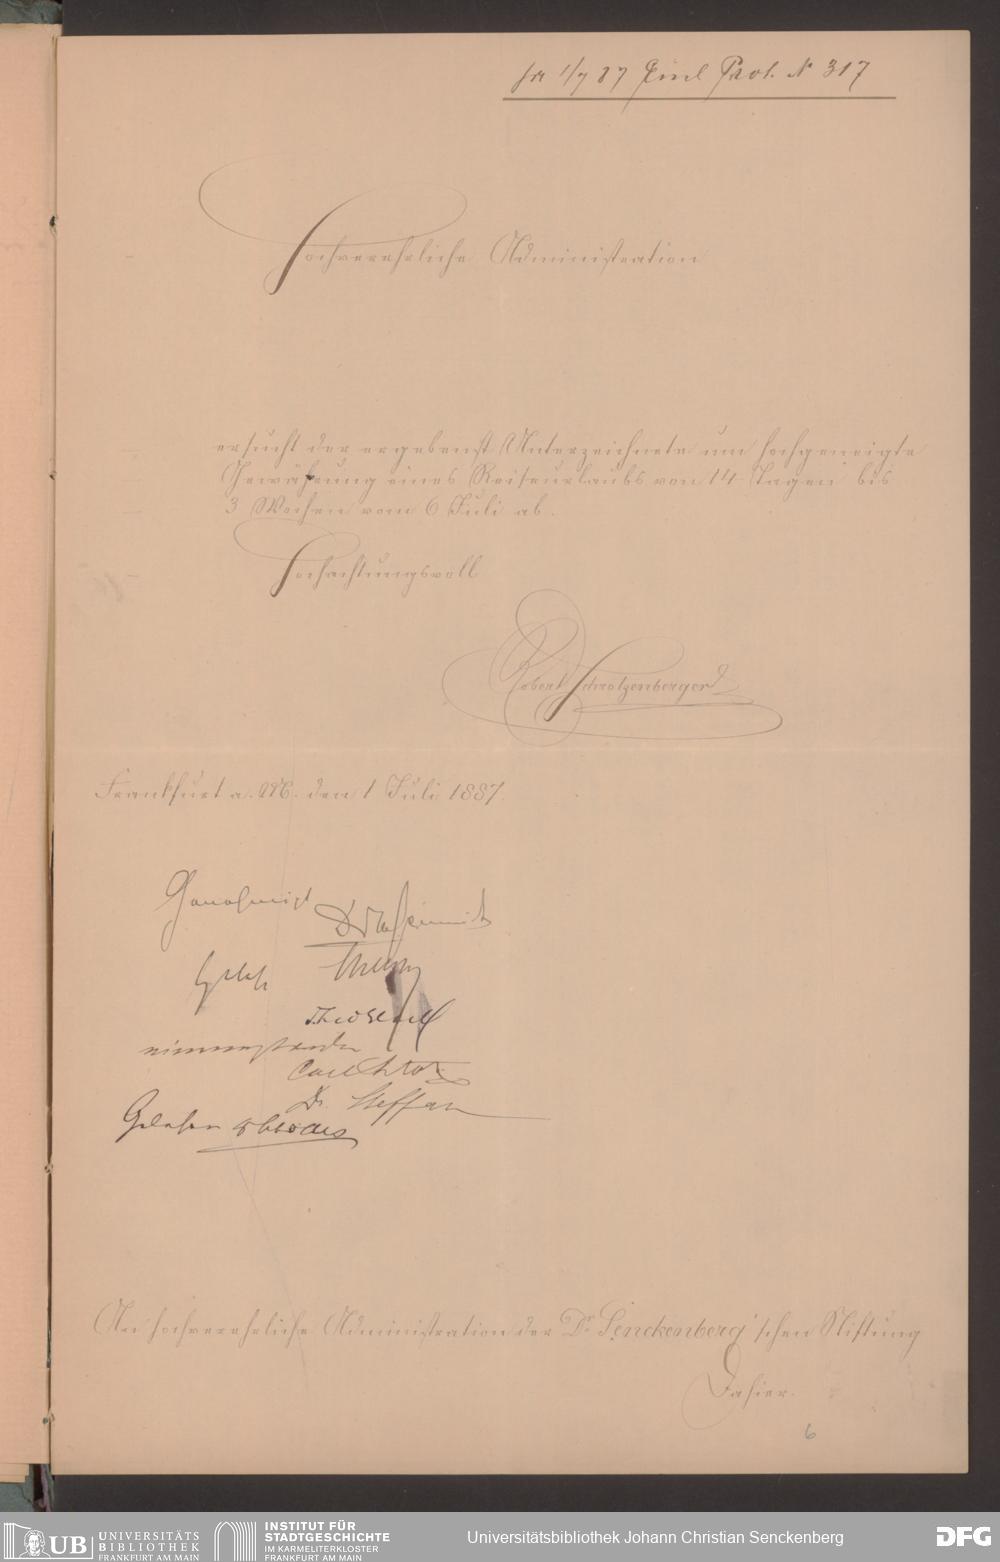 1/7 87 Prot. N 317
Hochverehrliche Administration
ersucht der ergebenst Unterzeichnete um hochgeneigte
Gewährung eines Reiseurlaubs von 14 Tagen bis
3 Wochen vom 6 Juli ab.
Hochachtungsvoll
Robert Schrotzenberger
Frankfurt a. M. den 1 Juli 1887.
Genehmigt
Dr. Steffan
Gelesen
An hochverehrliche Administration der Dr. Senckenberg'schen Stiftung
Dahier.
6
UB UNIVERSITÄTS
BIBLIOTHEK
FRANKFURT AM MAIN
INSTITUT FÜR
STADTGESCHICHTE
IM KARMELITERKLOSTER
FRANKFURT AM MAIN
Universitätsbibliothek Johann Christian Senckenberg
DFG